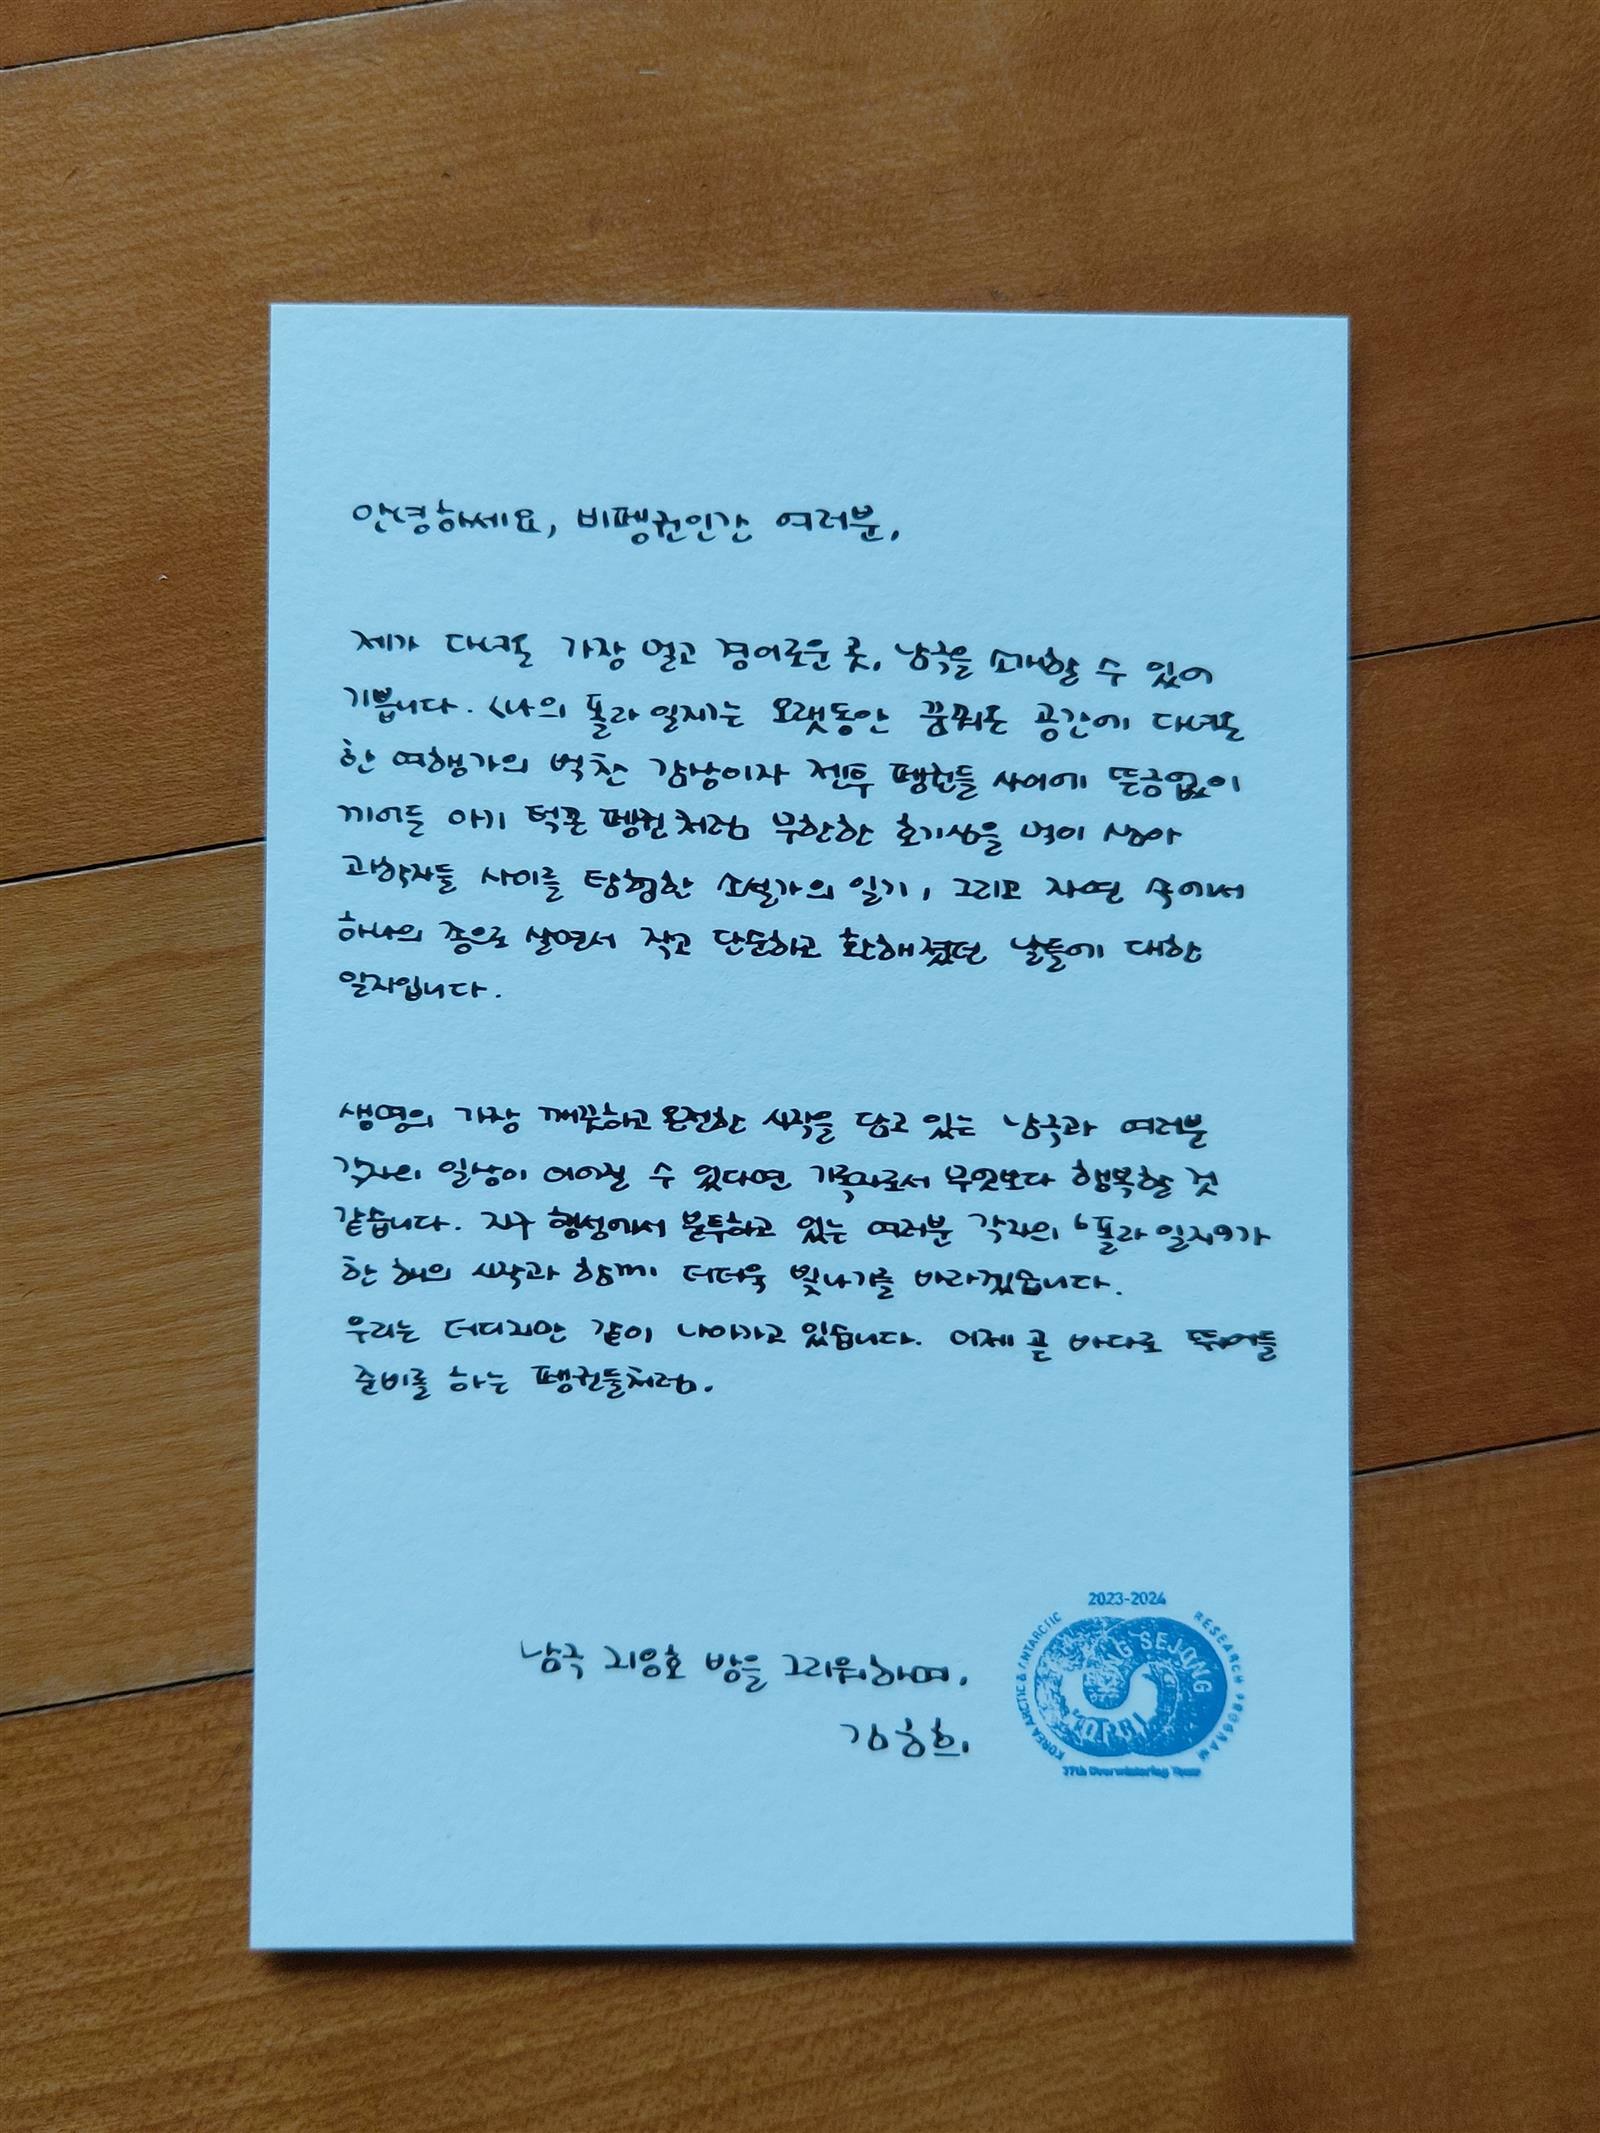 안녕하세요, 비펭귄인간 여러분,
제가 다녀온 가장 멀고 경이로운 곳, 남극을 소개할 수 있어
기쁩니다. <나의 폴라 일지>는 오랫동안 꿈꿔온 공간에 다녀온
한 여행가의 벅찬 감상이자 젠투 펭귄들 사이에 뜬금없이
끼어든 아기 턱끈 펭귄처럼 무한한 호기심을 먹이 삼아
과학자들 사이를 탐험한 소설가의 일기, 그리고 자연 속에서
하나의 종으로 살면서 작고 단순하고 환해졌던 날들에 대한
일지입니다.
생명의 가장 깨끗하고 온전한 시작을 담고 있는 남극과 여러분
각자의 일상이 이어질 수 있다면 기록자로서 무엇보다 행복할 것
같습니다. 지구 행성에서 분투하고 있는 여러분 각자의 '폴라 일지'가
한 해의 시작과 함께 더더욱 빛나기를 바라겠습니다.
우리는 더디지만 같이 나아가고 있습니다. 이제 곧 바다로 뛰어들
준비를 하는 펭귄들처럼.
남극 괴응호 밤을 그리워하며,
김금희
2023-2024
KOREA ARCTIC & ANTARCTIC RESEARCH PROGRAM
KING SEJONG
KOPRI
37th Overwintering Team